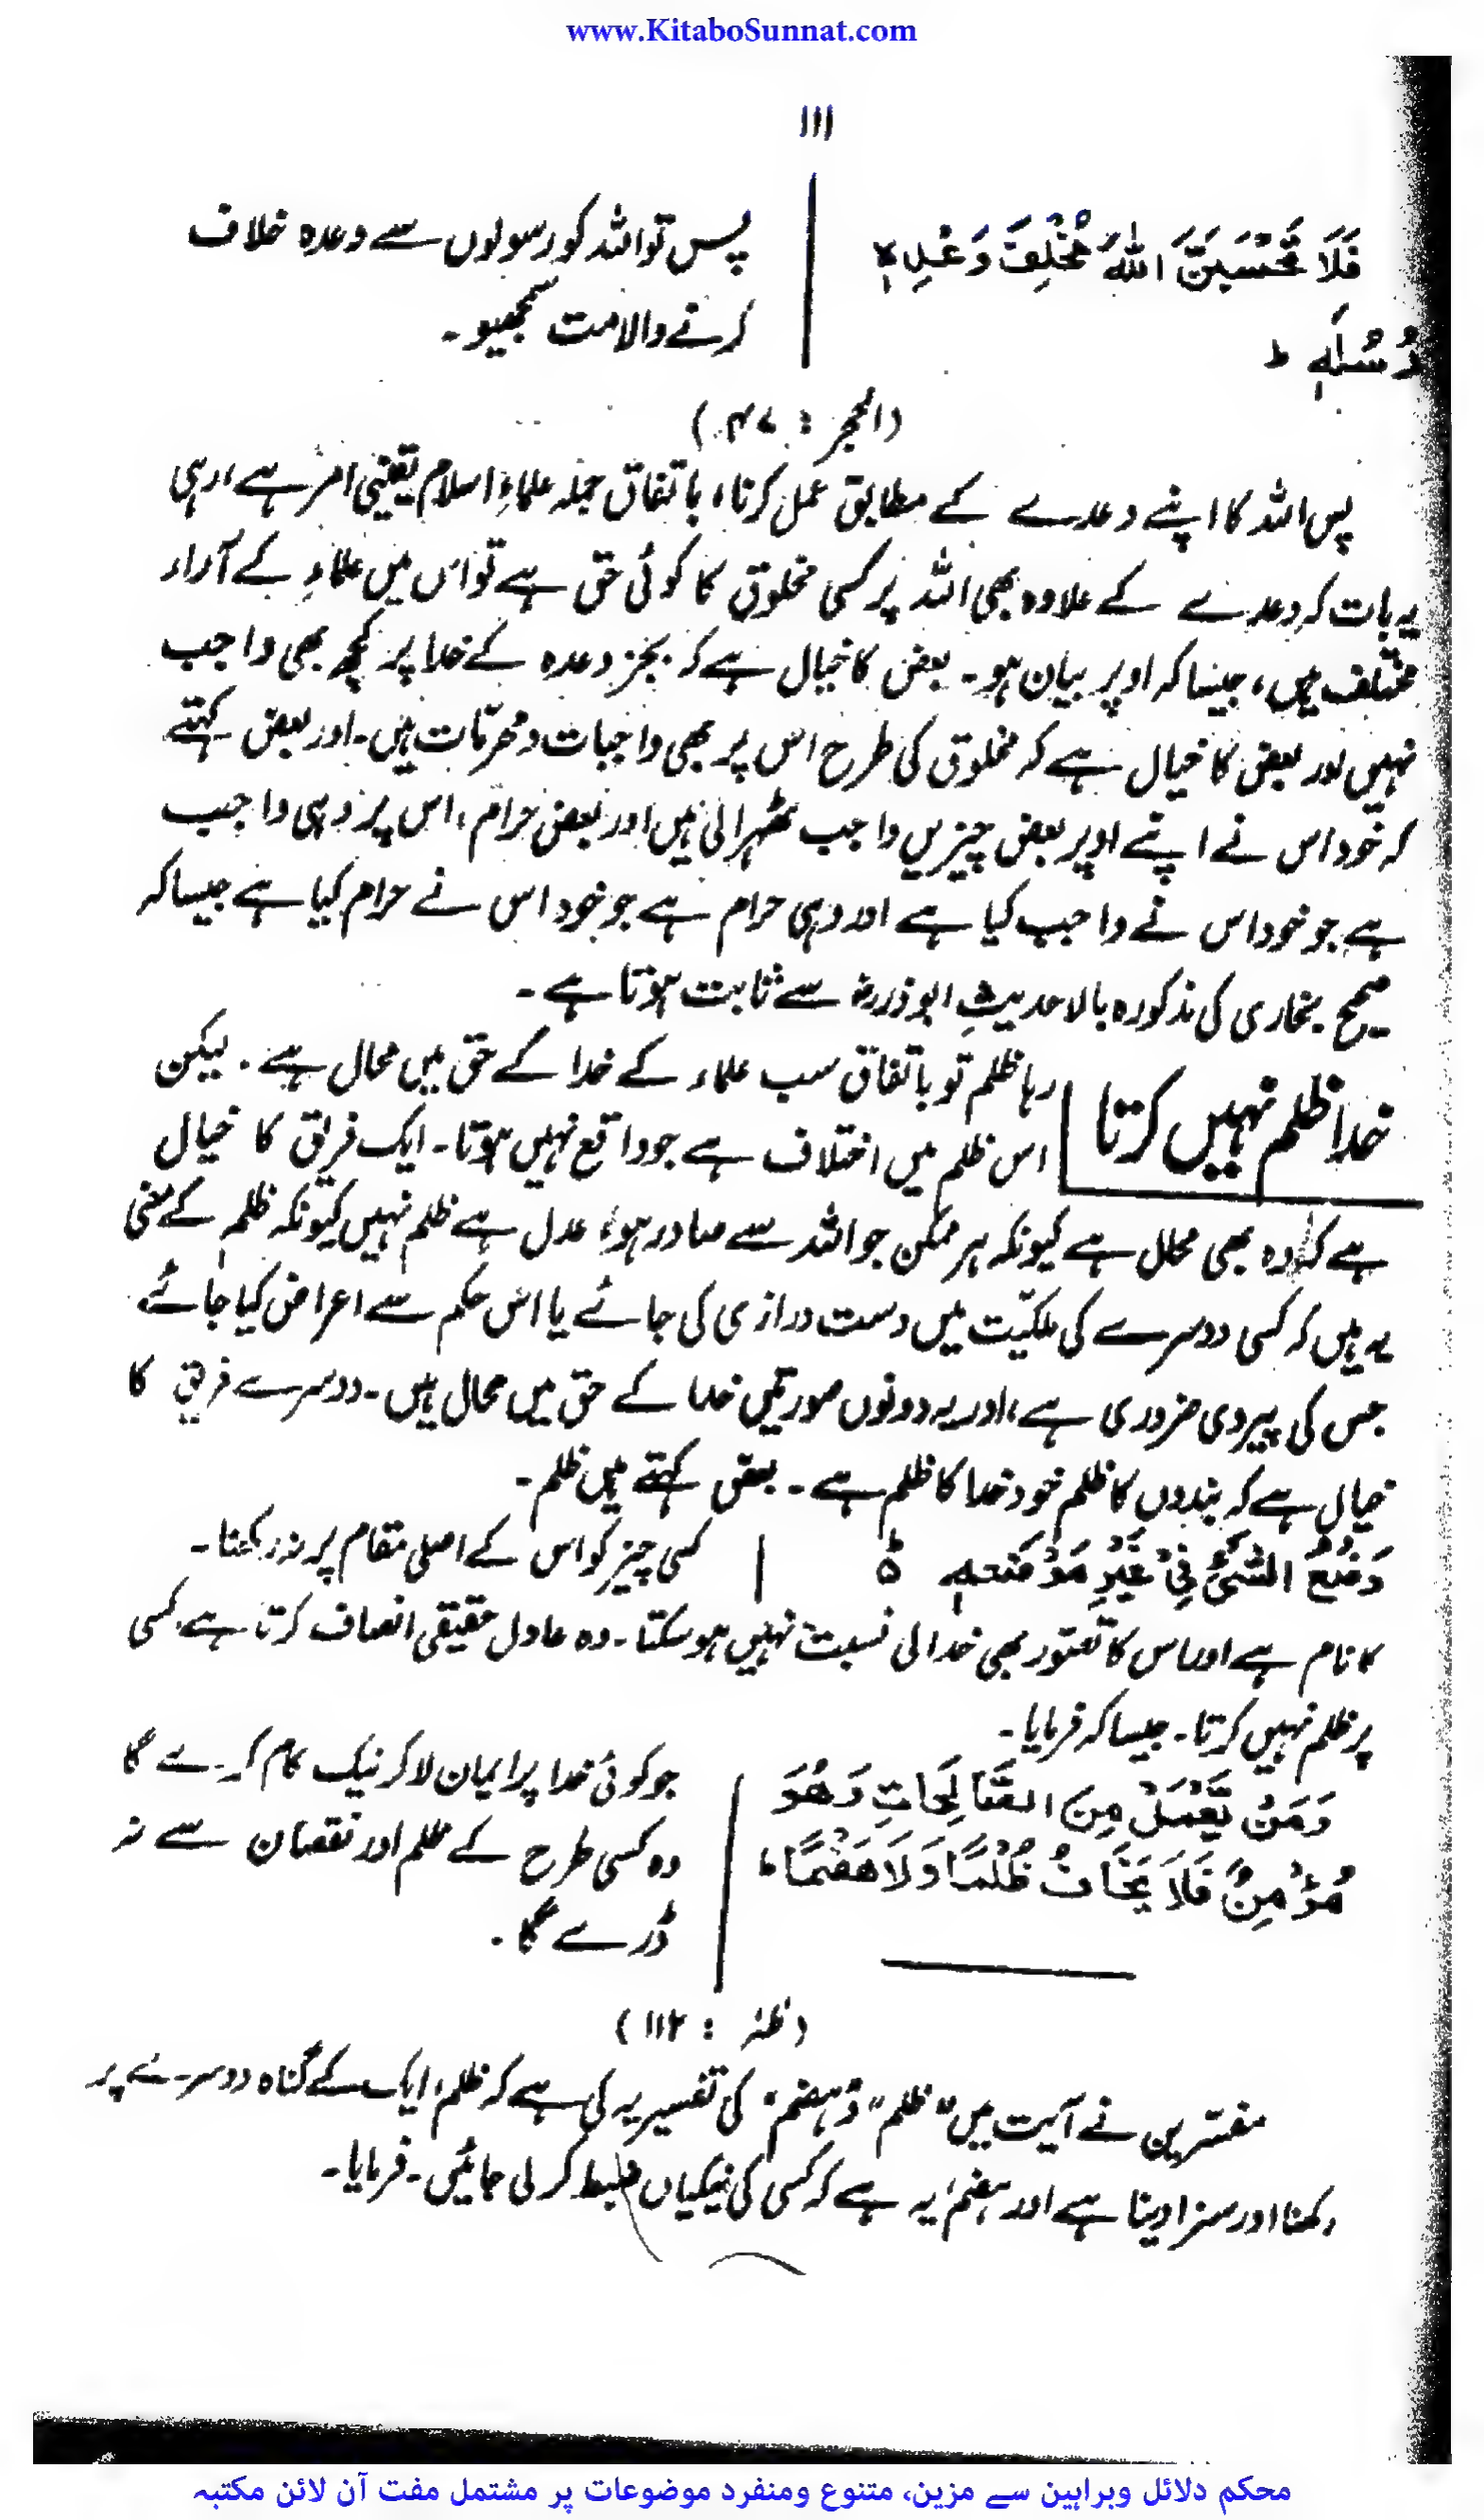 www.KitaboSunnat.com
۱۱۱
فَلَا تَحْسَبَنَّ اللّٰهَ مُخْلِفَ وَعْدِهٖ
رُسُلَهٗ ط
پس تو اللہ کو رسولوں سے وعدہ خلاف
کرنے والا مت سمجھیو۔
(الحجر : ۴۷)
پس اللہ کا اپنے وعدے کے مطابق عمل کرنا، باتفاق جملہ علماءِ اسلام یقینی امر ہے، رہی
یہ بات کہ وعدے کے علاوہ بھی اللہ پر کسی مخلوق کا کوئی حق ہے تو اس میں علماءِ کے آراء
مختلف ہیں، جیسا کہ اوپر بیان ہو۔ بعض کا خیال ہے کہ بجز وعدہ کے خدا پر کچھ بھی واجب
نہیں اور بعض کا خیال ہے کہ مخلوق کی طرح اس پر بھی واجبات و محرّمات ہیں۔ اور بعض کہتے
کہ خود اس نے اپنے اوپر بعض چیزیں واجب ٹھہرائی ہیں اور بعض حرام، اس پر وہی واجب
ہے جو خود اس نے واجب کیا ہے اور وہی حرام ہے جو خود اس نے حرام کیا ہے جیسا کہ
صحیح بخاری کی مذکورہ بالا حدیثِ ابوذرؓ سے ثابت ہوتا ہے۔
خدا ظلم نہیں کرتا
رہا ظلم تو باتفاق سب علماء کے خدا کے حق میں محال ہے۔ لیکن
اس ظلم میں اختلاف ہے جو واقع نہیں ہوتا۔ ایک فریق کا خیال
ہے کہ وہ بھی محال ہے کیونکہ ہر ممکن جو اللہ سے صادر ہو، عدل ہے ظلم نہیں کیونکہ ظلم کے معنی
یہ ہیں کہ کسی دوسرے کی ملکیّت میں دست درازی کی جائے یا اس حکم سے اعراض کیا جائے،
جس کی پیروی ضروری ہے، اور یہ دونوں صورتیں خدا کے حق میں محال ہیں۔ دوسرے فریق کا
خیال ہے کہ بندوں کا ظلم خود خدا کا ظلم ہے۔ بعض کہتے ہیں ظلم۔
وَضْعُ الشَّيْءِ فِيْ غَيْرِ مَوْضَعِهٖ ہ
کسی چیز کو اس کے اصلی مقام پر نہ رکھنا۔
کا نام ہے اور اس کا تصوّر بھی خدا کی نسبت نہیں ہو سکتا۔ وہ عادل حقیقی انصاف کرتا ہے، کسی
پر ظلم نہیں کرتا۔ جیسا کہ فرمایا۔
وَمَنْ يَّعْمَلْ مِنَ الصَّالِحَاتِ وَهُوَ
مُؤْمِنٌ فَلَا يَخَافُ ظُلْمًا وَلَا هَضْمًا ط
جو کوئی خدا پر ایمان لا کر نیک کام کرے گا
وہ کسی طرح کے ظلم اور نقصان سے نہ
ڈرے گا۔
(طٰہٰ : ۱۱۲)
مفسّرین نے آیت میں "ظلم" و "ہضم" کی تفسیر یہ کی ہے کہ ظلم، ایک کے گناہ دوسرے پر
رکھنا اور سزا دینا ہے اور ہضم، یہ ہے کہ کسی کی نیکیاں ضبط کر لی جائیں۔ فرمایا۔
محکم دلائل وبراہین سے مزین، متنوع ومنفرد موضوعات پر مشتمل مفت آن لائن مکتبہ